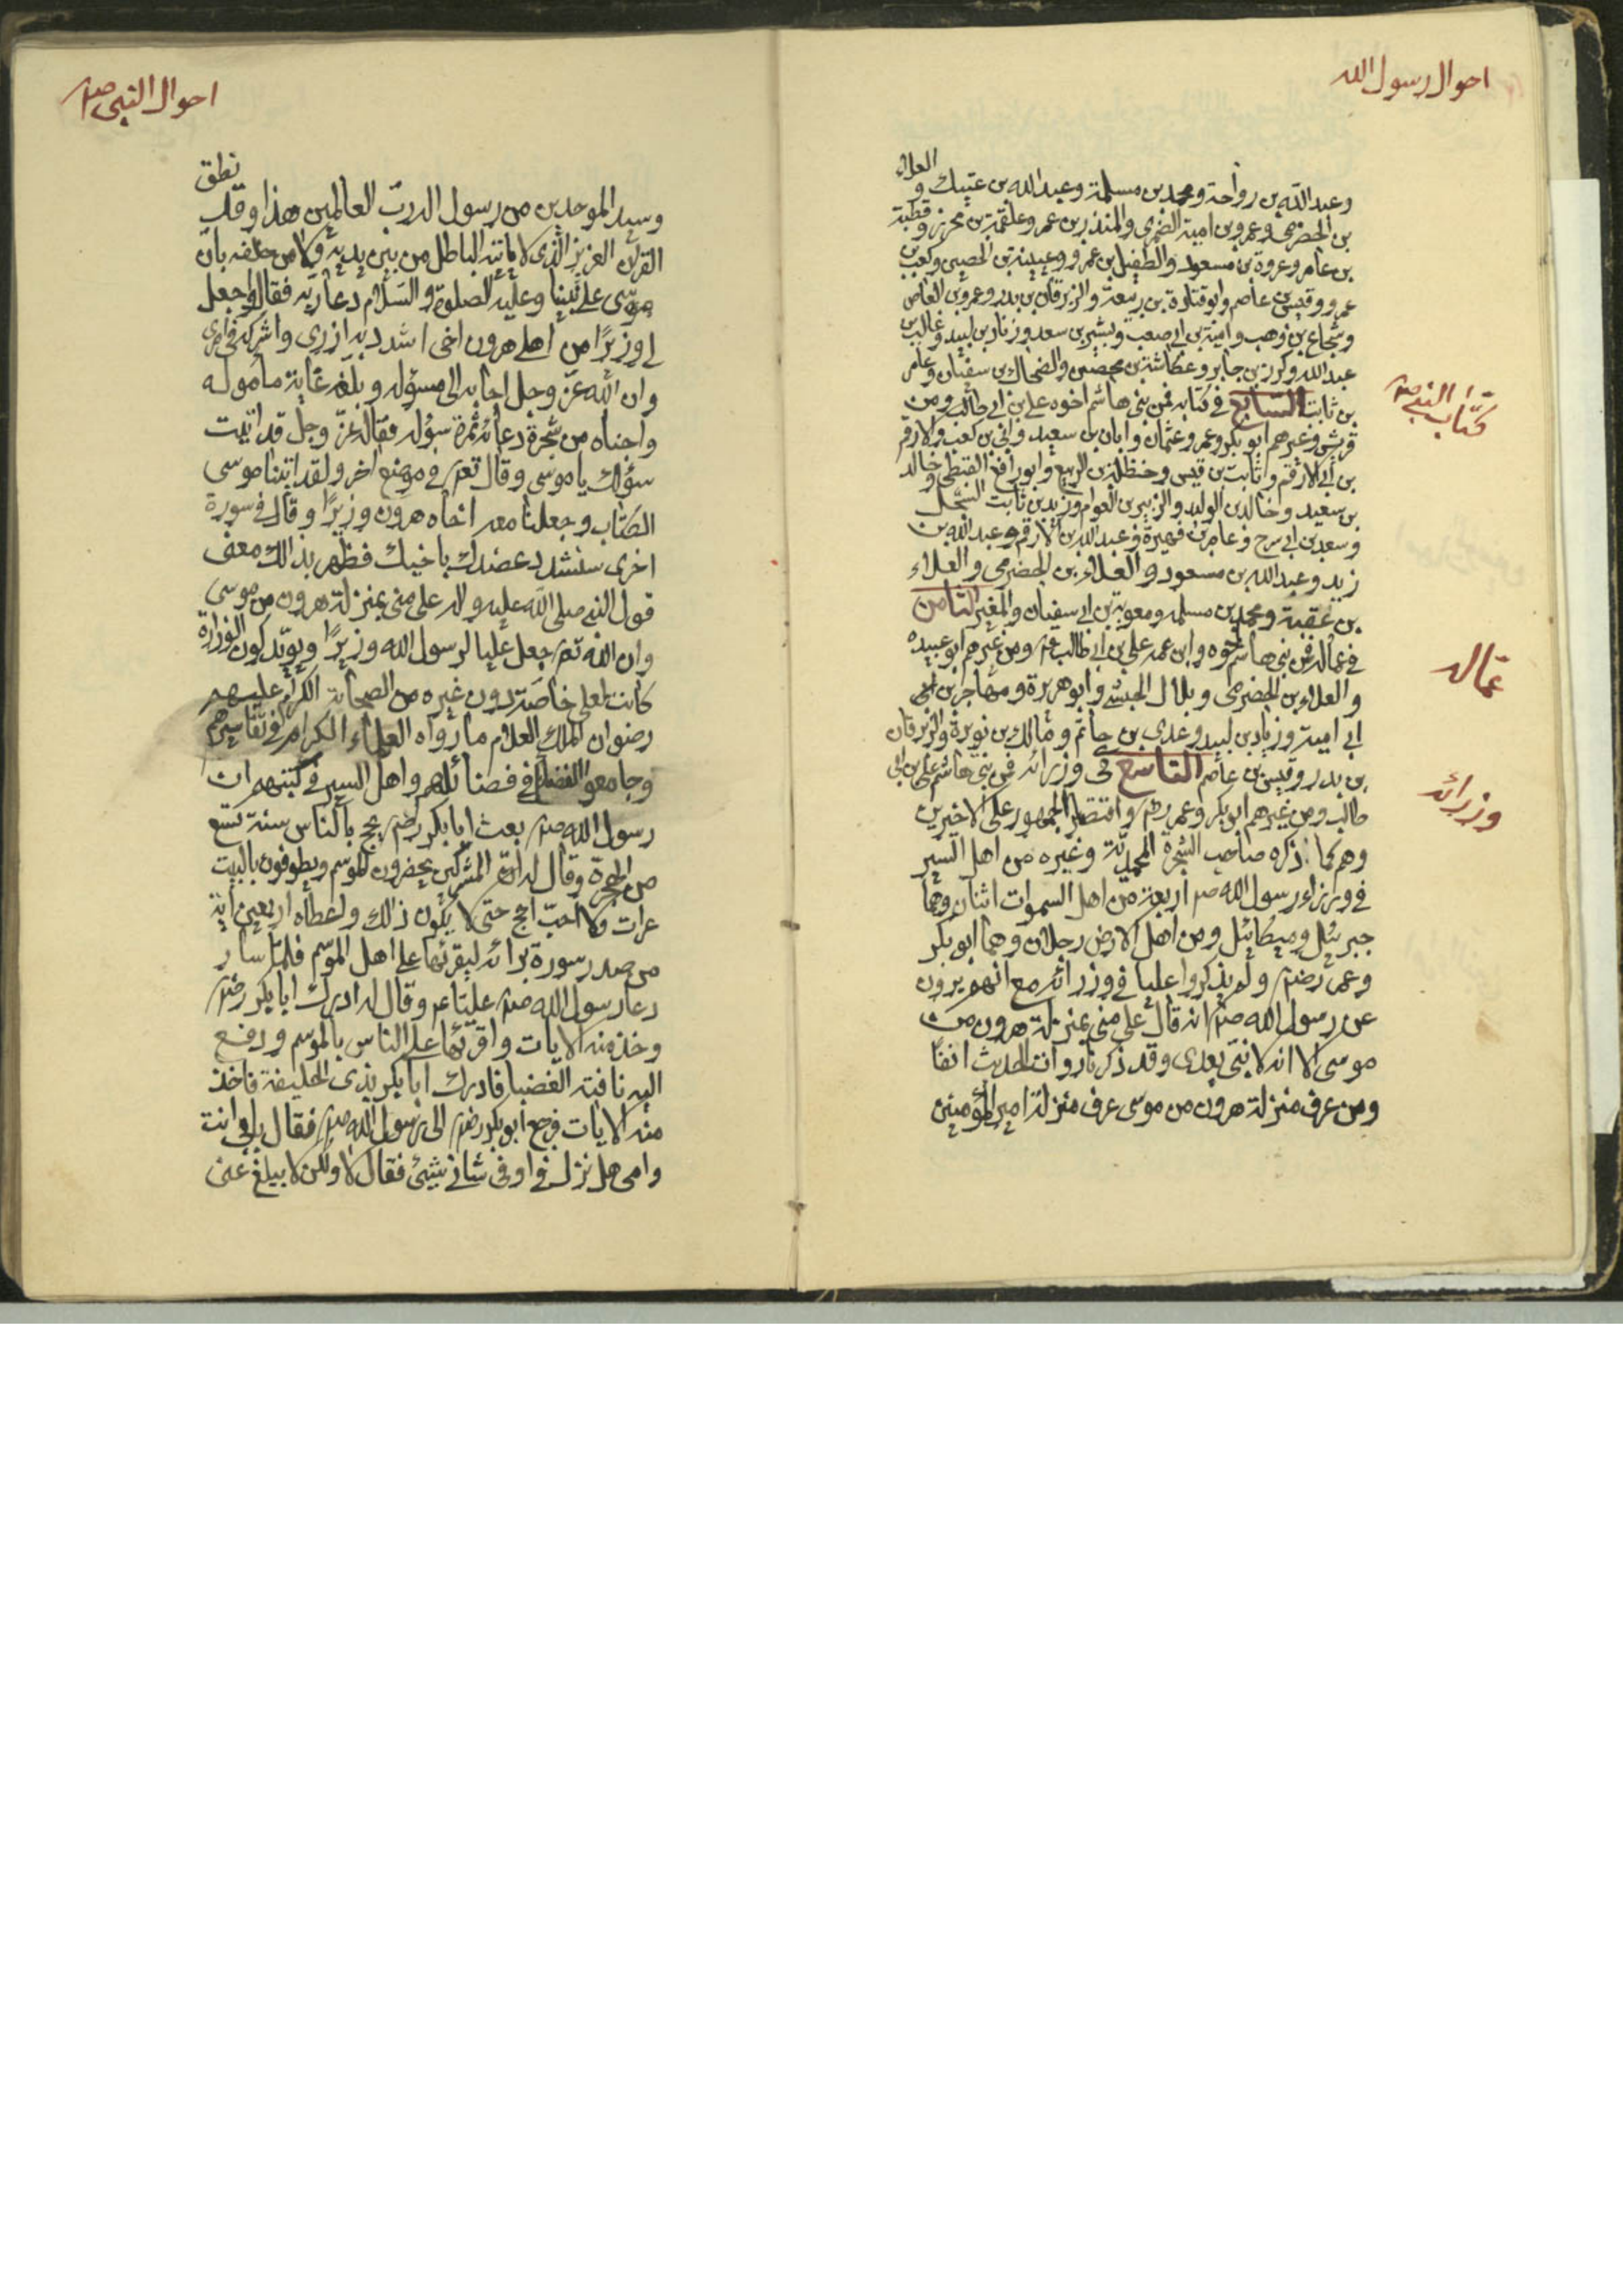 احوال رسول الله
وعبد الله بن رواحة ومحمد بن مسلمة وعبد الله بن عتيك والعلاء
بن الحضرمي وعمرو بن امية الضمري والمنذر بن عمر وعلقمة بن محرز وقطبة
بن عامر وعروة بن مسعود والطفيل بن عمرو وعيينة بن الحصين وكعب بن
عمرو وقيس بن عاصم وابو قتادة بن ربيعة والزبرقان بن بدر وعمرو بن العاص
وشجاع بن وهب وامية بن ابي صعب وبشير بن سعد وزناد بن لبيد وغالب بن
عبد الله وكرز بن جابر وعكاشة بن محصين والضحاك بن سفيان وعامر
بن ثابت السابع في كتابه فمن بني هاشم اخوه علي بن ابي طالب ومن
كتاب النبي صم
قريش وغيرهم ابو بكر وعمر وعثمان وابان بن سعيد وابي بن كعب والارقم
بن ابي الارقم وثابت بن قيس وحنظلة بن الربيع وابو رافع القبطي وخالد
بن سعيد وخالد بن الوليد والزبير بن العوام وزيد بن ثابت السجل
وسعد بن ابي سرح وعامر بن فهيرة وعبد الله بن الارقم وعبد الله بن
زيد وعبد الله بن مسعود والعلاء بن الحضرمي والعلاء
بن عقبة ومحمد بن مسلمه ومعوية بن ابي سفيان والمغير الثامن
في عماله فمن بني هاشم اخوه وابن عمه علي بن ابي طالب عم ومن غيرهم ابو عبيده
عماله
والعلاء بن الحضرمي وبلال الحبشي وابو هريرة ومهاجر بن ابي
ابي امية وزياد بن لبيد وعدي بن حاتم ومالك بن نويرة والزبرقان
بن بدر وقيس بن عاصم التاسع في وزرائه فمن بني هاشم علي بن ابي
وزرائه
طالب ومن غيرهم ابو بكر وعمر رضم واقتصر الجمهور على الاخيرين
وهم كما ذكره صاحب الشجرة المحمدية وغيره من اهل السير
في وزراء رسول الله صم اربعة من اهل السموات اثنان وهما
جبرئيل وميكائيل ومن اهل الارض رجلان وهما ابو بكر
وعمر رضم ولم يذكروا عليا في وزرائه مع انهم يروون
عن رسول الله صم انه قال علي مني بمنزلة هرون من
موسى الا انه لا نبي بعدي وقد ذكرنا روات الحديث انفا
ومن عرف منزلة هرون من موسى عرف منزلة امير المؤمنين
احوال النبي صم
وسيد الموحدين من رسول الله رب العالمين هذا وقد نطق
القران العزيز الذي لا ياتيه الباطل من بين يديه ولا من خلفه بان
موسى على نبينا وعليه الصلوة والسلام دعا ربه فقال واجعل
لي وزيرا من اهلي هرون اخي اشدد به ازري واشركه في امري
وان الله عز وجل اجابه الى مسؤله وبلغه غاية مأموله
واجناه من شجرة دعائه ثمرة سؤله فقال عز وجل قد اتيت
سؤلك يا موسى وقال تعم في موضع اخر ولقد اتينا موسى
الكتاب وجعلنا معه اخاه هرون وزيرا وقال في سورة
اخرى سنشد عضدك باخيك فظهر بذالك معنى
قول النبي صلى الله عليه واله علي مني بمنزلة هرون من موسى
وان الله تعم جعل عليا لرسول الله وزيرا ويؤيد كون الوزارة
كانت لعلي خاصة دون غيره من الصحابة الكرام عليهم
رضوان الملك العلام ما رواه العلماء الكرام في تفاسيرهم
وجامعو الفضايل في فضائلهم واهل السير في كتبهم ان
رسول الله صم بعث ابا بكر رضم يحج بالناس سنة تسع
من الهجرة وقال له ان المشركين يحضرون الموسم ويطوفون بالبيت
عرات ولا احب احج حتى لا يكون ذالك واعطاه اربعين اية
من صدر سورة برائه ليقرئها على اهل الموسم فلما سار
دعا رسول الله صم عليا عم وقال له ادرك ابا بكر رضم
وخذ منه الايات واقرئها على الناس بالموسم ودفع
اليه ناقته الغضبا فادرك ابا بكر بذي الحليفة فاخذ
منه الايات فرجع ابو بكر رضم الى رسول الله صم فقال بابي انت
وامي هل نزل في او في شاني شيئ فقال لا ولكن لا يبلغ عني